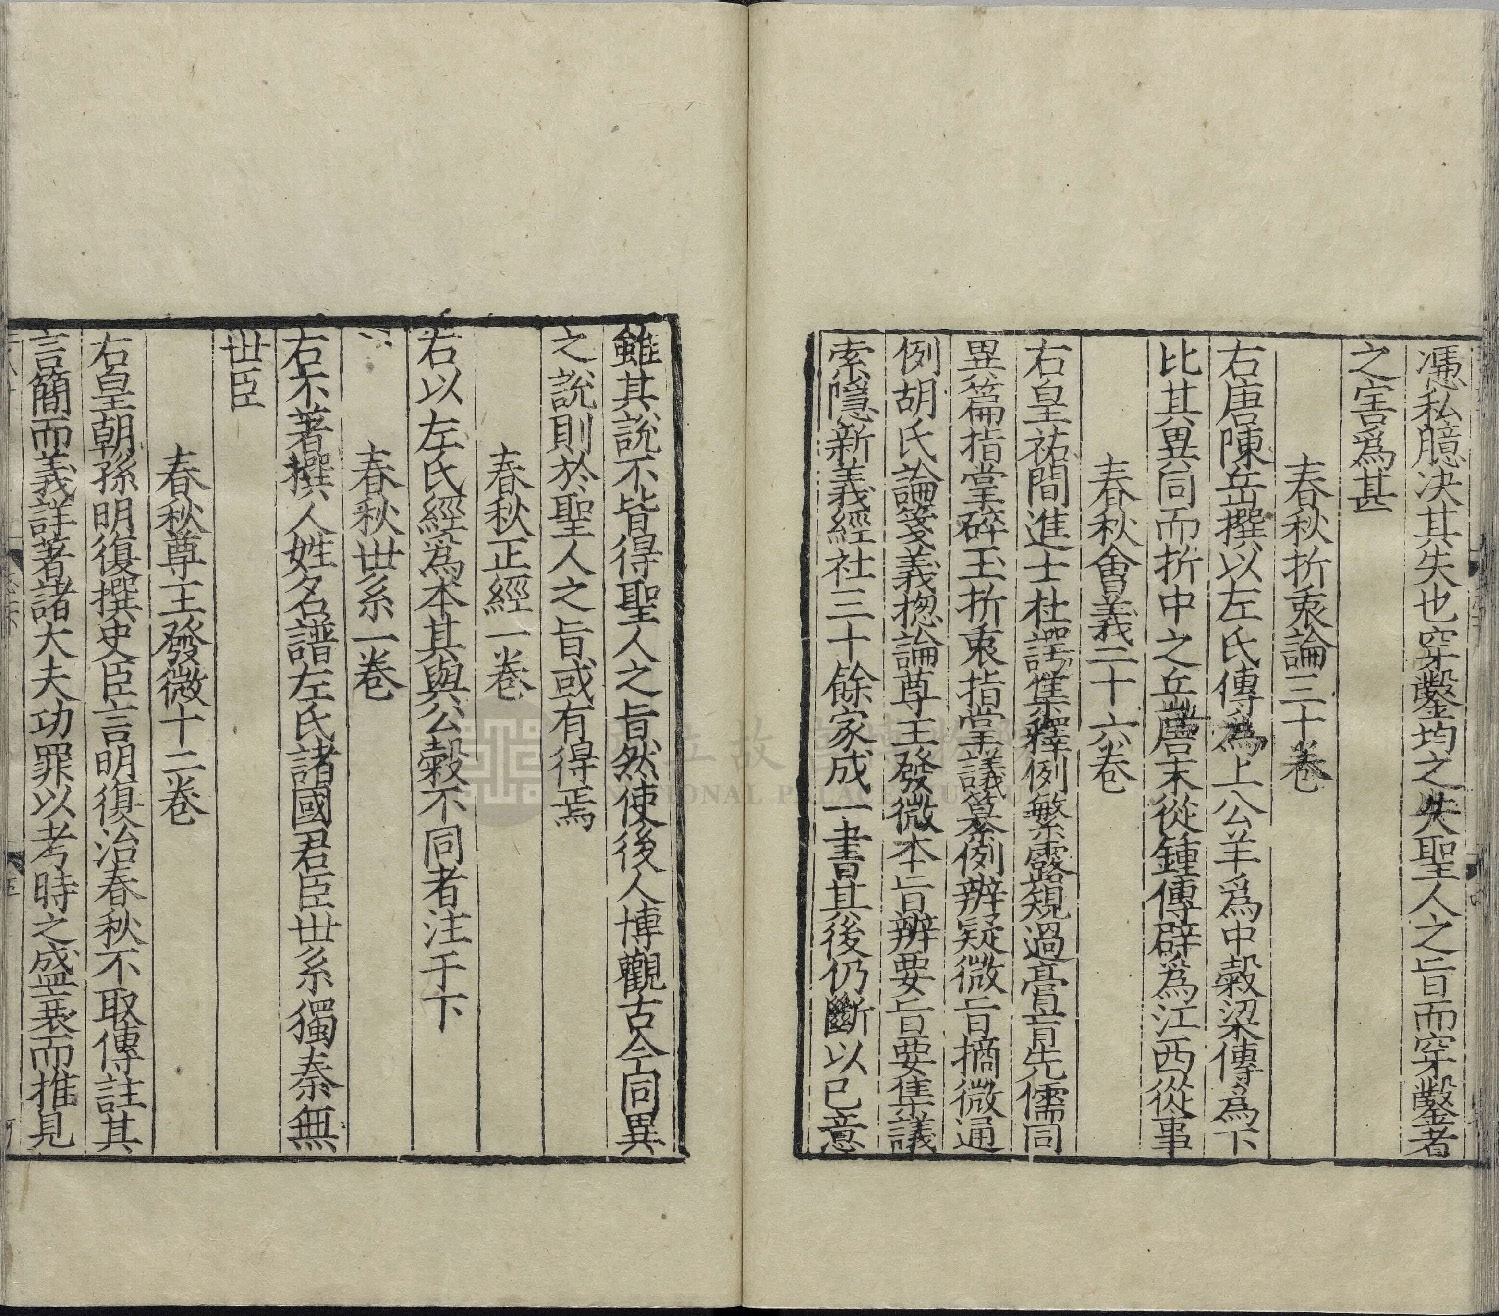 馮私臆决其失也穿鑿均之失聖人之旨而穿鑿者
之害爲甚
春秋折衷論三十卷
右唐陳岳撰以左氏傳爲上公羊爲中穀梁傳爲下
比其異同而折中之岳唐末從鍾傳辟爲江西從事
春秋會義二十六卷
右皇祐間進士杜諤集釋例繁露規過膏肓先儒同
異篇指掌碎玉折衷指掌議纂例辨疑微旨摘微通
例胡氏論箋義揔論尊王發微本旨辨要旨要集議
索隱新義經社三十餘家成一書其後仍斷以己意
雖其說不皆得聖人之旨然使後人博觀古今同異
之說則於聖人之旨或有得焉
春秋正經一卷
右以左氏經爲本其與公穀不同者注于下
春秋世系一卷
右不著撰人姓名譜左氏諸國君臣世系獨秦無
世臣
春秋尊王發微十二卷
右皇朝孫明復撰史臣言明復治春秋不取傳註其
言簡而義詳著諸大夫功罪以考時之盛衰而推見